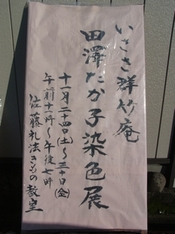 いささ群竹庵
田澤たか子染色展
十一月二十四日(土)〜三十日(金)
午前十時〜午後七時
佐藤礼法きもの教室